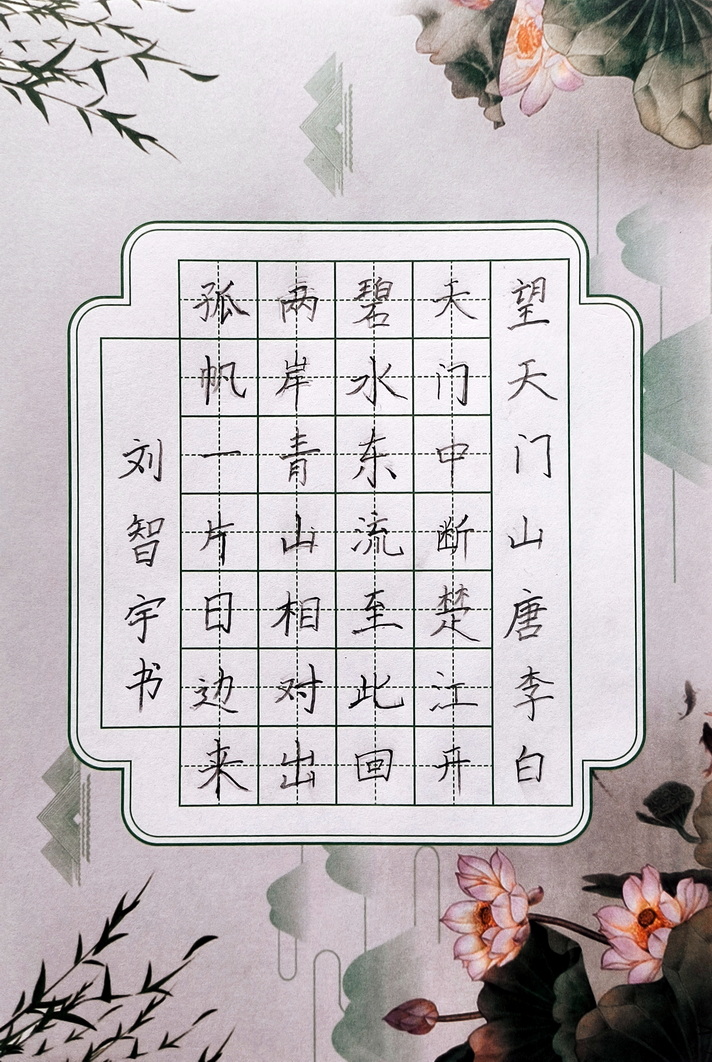 望天门山唐李白
天门中断楚江开
碧水东流至此回
两岸青山相对出
孤帆一片日边来
刘智宇书